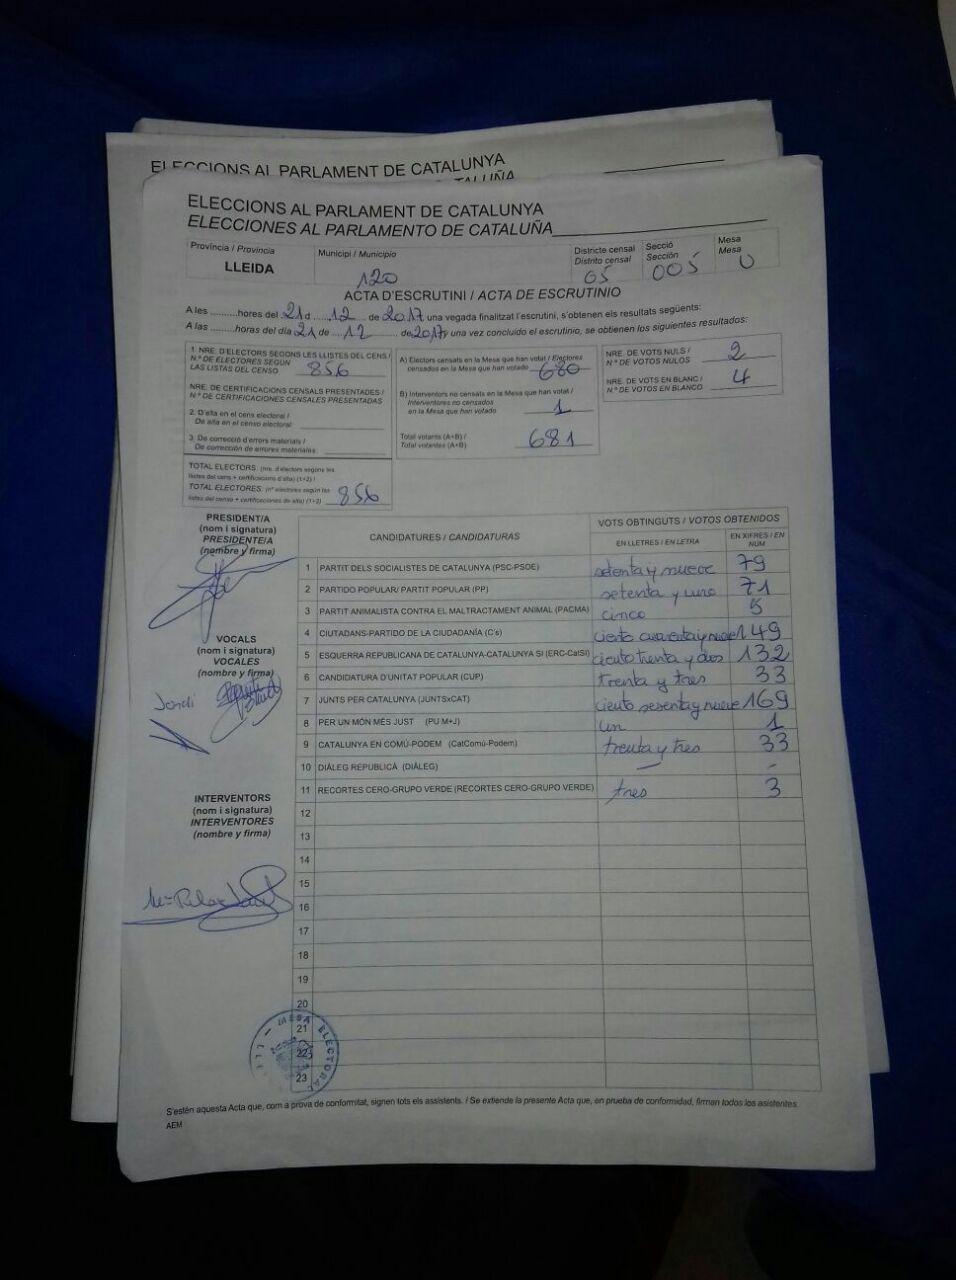 ELECCIONS AL PARLAMENT DE CATALUNYA
ELECCIONS AL PARLAMENT DE CATALUNYA
ELECCIONES AL PARLAMENTO DE CATALUÑA
Província / Provincia
LLEIDA
Municipi / Municipio
120
Districte censal
Distrito censal
05
Secció
Sección
005
Mesa
Mesa
U
ACTA D'ESCRUTINI / ACTA DE ESCRUTINIO
A les ..........hores del 21 d ...... 12 .. de 2017 una vegada finalitzat l'escrutini, s'obtenen els resultats següents:
A las ..........horas del día 21 de .... 12 .......... de 2017 y una vez concluido el escrutinio, se obtienen los siguientes resultados:
1. NRE. D'ELECTORS SEGONS LES LLISTES DEL CENS /
N.º DE ELECTORES SEGÚN
LAS LISTAS DEL CENSO 856
NRE. DE CERTIFICACIONS CENSALS PRESENTADES /
N.º DE CERTIFICACIONES CENSALES PRESENTADAS
2. D'alta en el cens electoral /
De alta en el censo electoral
3. De correcció d'errors materials /
De corrección de errores materiales
TOTAL ELECTORS: (nre. d'electors segons les
llistes del cens + certificacions d'alta) (1+2) /
TOTAL ELECTORES: (nº electores según las
listas del censo + certificaciones de alta) (1+2) 856
A) Electors censats en la Mesa que han votat / Electores
censados en la Mesa que han votado 680
B) Interventors no censats en la Mesa que han votat /
Interventores no censados
en la Mesa que han votado 1
Total votants (A+B) /
Total votantes (A+B) 681
NRE. DE VOTS NULS /
N.º DE VOTOS NULOS 2
NRE. DE VOTS EN BLANC /
N.º DE VOTOS EN BLANCO 4
PRESIDENT/A
(nom i signatura)
PRESIDENTE/A
(nombre y firma)
VOCALS
(nom i signatura)
VOCALES
(nombre y firma)
Jordi
INTERVENTORS
(nom i signatura)
INTERVENTORES
(nombre y firma)
Mª Pilar
CANDIDATURES / CANDIDATURAS
VOTS OBTINGUTS / VOTOS OBTENIDOS
EN LLETRES / EN LETRA
EN XIFRES / EN NÚM
1 PARTIT DELS SOCIALISTES DE CATALUNYA (PSC-PSOE) setenta y nueve 79
2 PARTIDO POPULAR/ PARTIT POPULAR (PP) setenta y uno 71
3 PARTIT ANIMALISTA CONTRA EL MALTRACTAMENT ANIMAL (PACMA) cinco 5
4 CIUTADANS-PARTIDO DE LA CIUDADANÍA (C's) ciento cuarenta y nueve 149
5 ESQUERRA REPUBLICANA DE CATALUNYA-CATALUNYA SÍ (ERC-CatSí) ciento trenta y dos 132
6 CANDIDATURA D'UNITAT POPULAR (CUP) trenta y tres 33
7 JUNTS PER CATALUNYA (JUNTSxCAT) ciento sesenta y nueve 169
8 PER UN MÓN MÉS JUST (PU M+J) un 1
9 CATALUNYA EN COMÚ-PODEM (CatComú-Podem) trenta y tres 33
10 DIÀLEG REPUBLICÀ (DIÀLEG) — -
11 RECORTES CERO-GRUPO VERDE (RECORTES CERO-GRUPO VERDE) tres 3
12
13
14
15
16
17
18
19
20
21
22
23
MESA ELECTORAL
S'estén aquesta Acta que, com a prova de conformitat, signen tots els assistents. / Se extiende la presente Acta que, en prueba de conformidad, firman todos los asistentes.
AEM